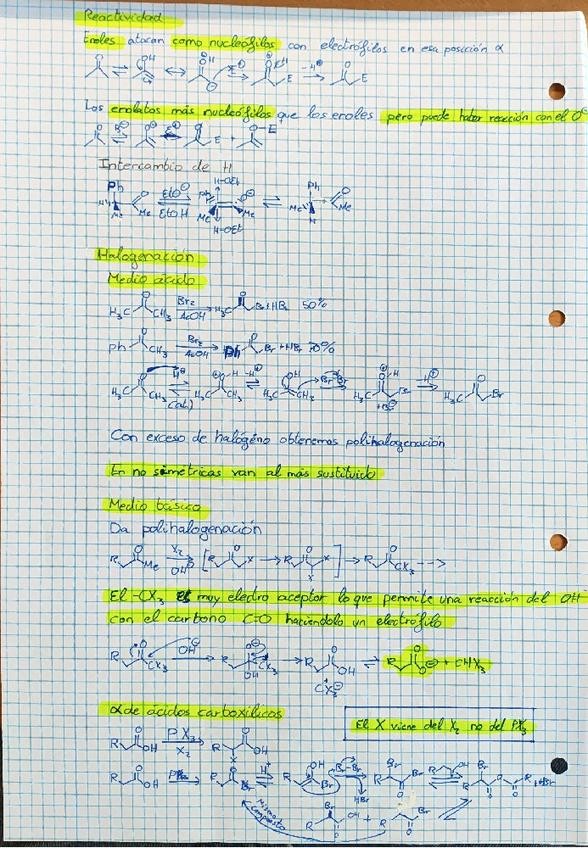 Reactividad
Enoles atacan como nucleófilos con electrófilos en esa posición α
O OH OH E⊕ OH -H⊕ O
E E
Los enolatos más nucleófilos que los enoles pero puede haber reacción con el O⊖
B⊖ E⊕ E + O-E
Intercambio de H
Ph O EtO⊖ H-OEt Ph
Me Me EtOH Me Me H Me
H-OEt
Halogenación
Medio ácido
H₃C CH₃ Br₂ AcOH H₃C Br + HBr 50%
Ph CH₃ Br₂ AcOH Ph Br + HBr 70%
H₃C CH₃ H⊕ (cat) H₃C CH₃ -H⊕ H₃C CH₂ Br-Br H₃C Br -H⊕ H₃C Br
Con exceso de halógeno obtenemos polihalogenación
En no simétricas van al más sustituido
Medio básico
Da polihalogenación
R Me X₂ OH⊖ [ R X R X X ] R CX₃ -->
El -CX₃ es muy electro aceptor lo que permite una reacción del OH⁻
con el carbono C=O haciéndolo un electrófilo
R CX₃ OH⊖ R OH CX₃ R OH CX₃⊖ R O⊖ + CHX₃
α de ácidos carboxílicos
El X viene del X₂ no del PX₃
R OH PX₃ X₂ R OH X
R OH R Br H⊕ R OH Br Br-Br R Br Br O R OH R Br O O R + HBr
HBr
Mismo compuesto R Br OH + R Br